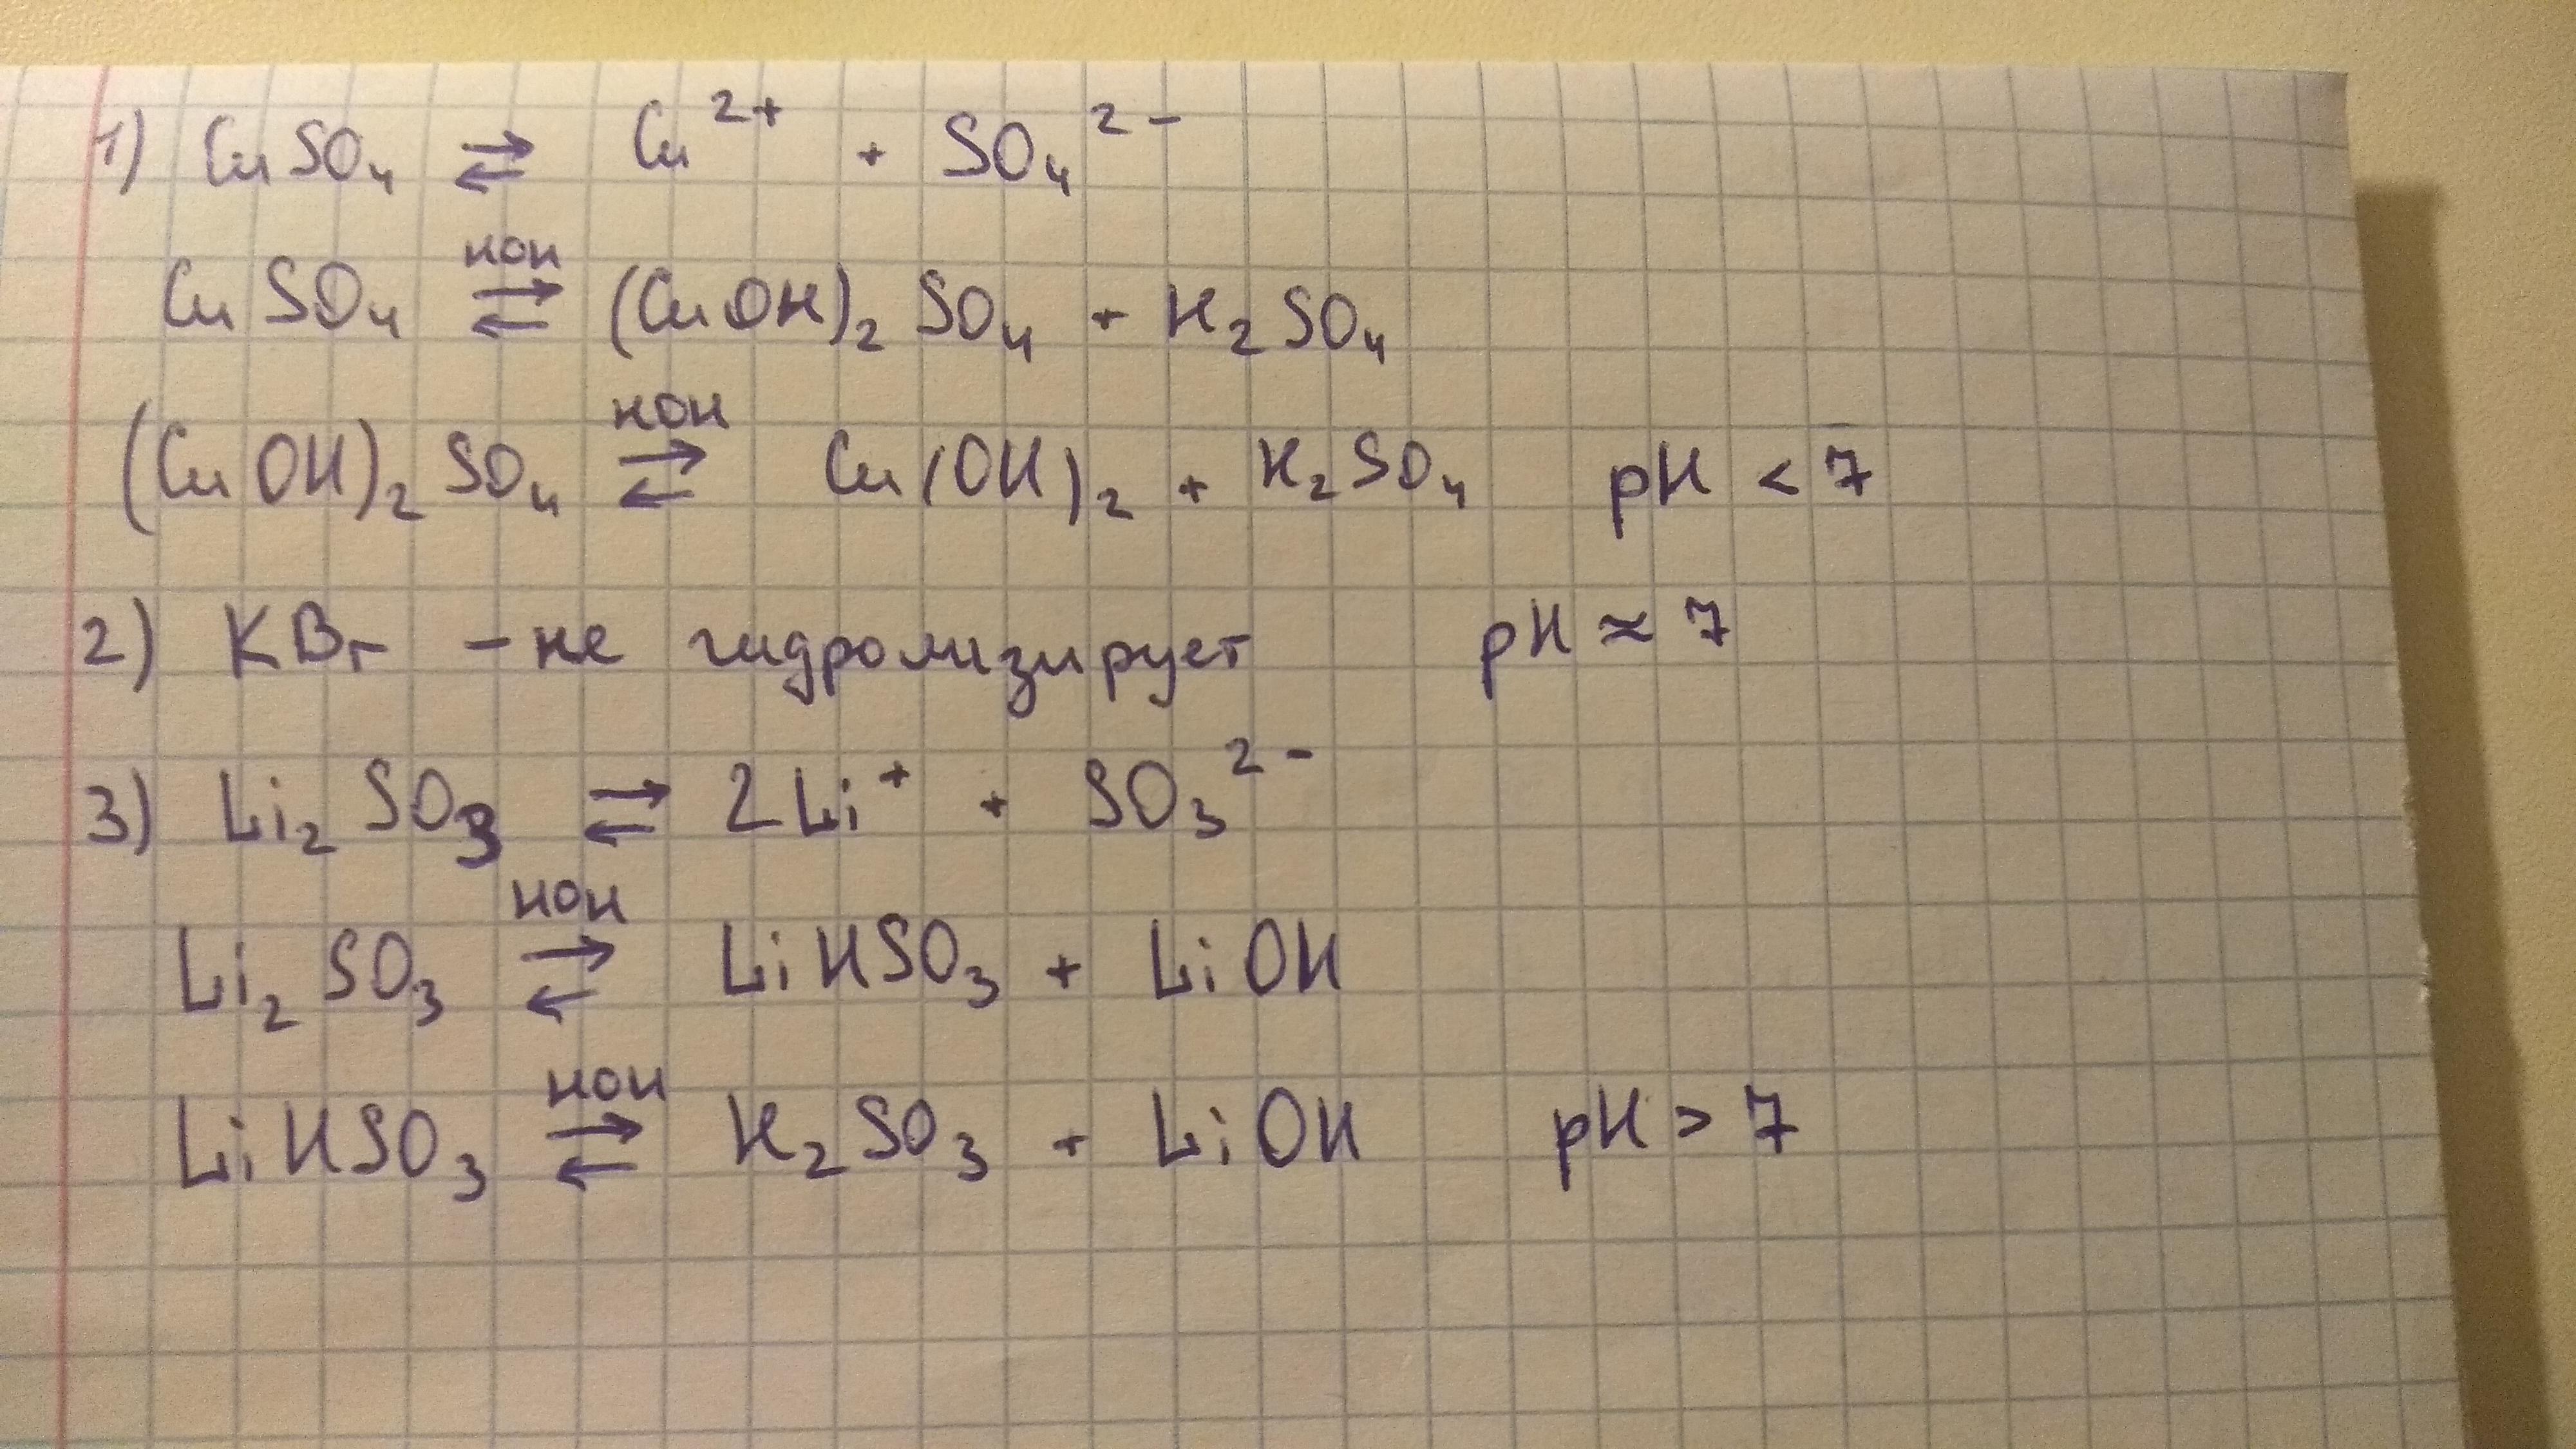 1) CuSO₄ ⇄ Cu²⁺ + SO₄²⁻
CuSO₄ ⇄ (HOH) (CuOH)₂SO₄ + H₂SO₄
(CuOH)₂SO₄ ⇄ (HOH) Cu(OH)₂ + H₂SO₄ pH < 7
2) KBr - не гидролизирует pH ≈ 7
3) Li₂SO₃ ⇄ 2Li⁺ + SO₃²⁻
Li₂SO₃ ⇄ (HOH) LiHSO₃ + LiOH
LiHSO₃ ⇄ (HOH) H₂SO₃ + LiOH pH > 7